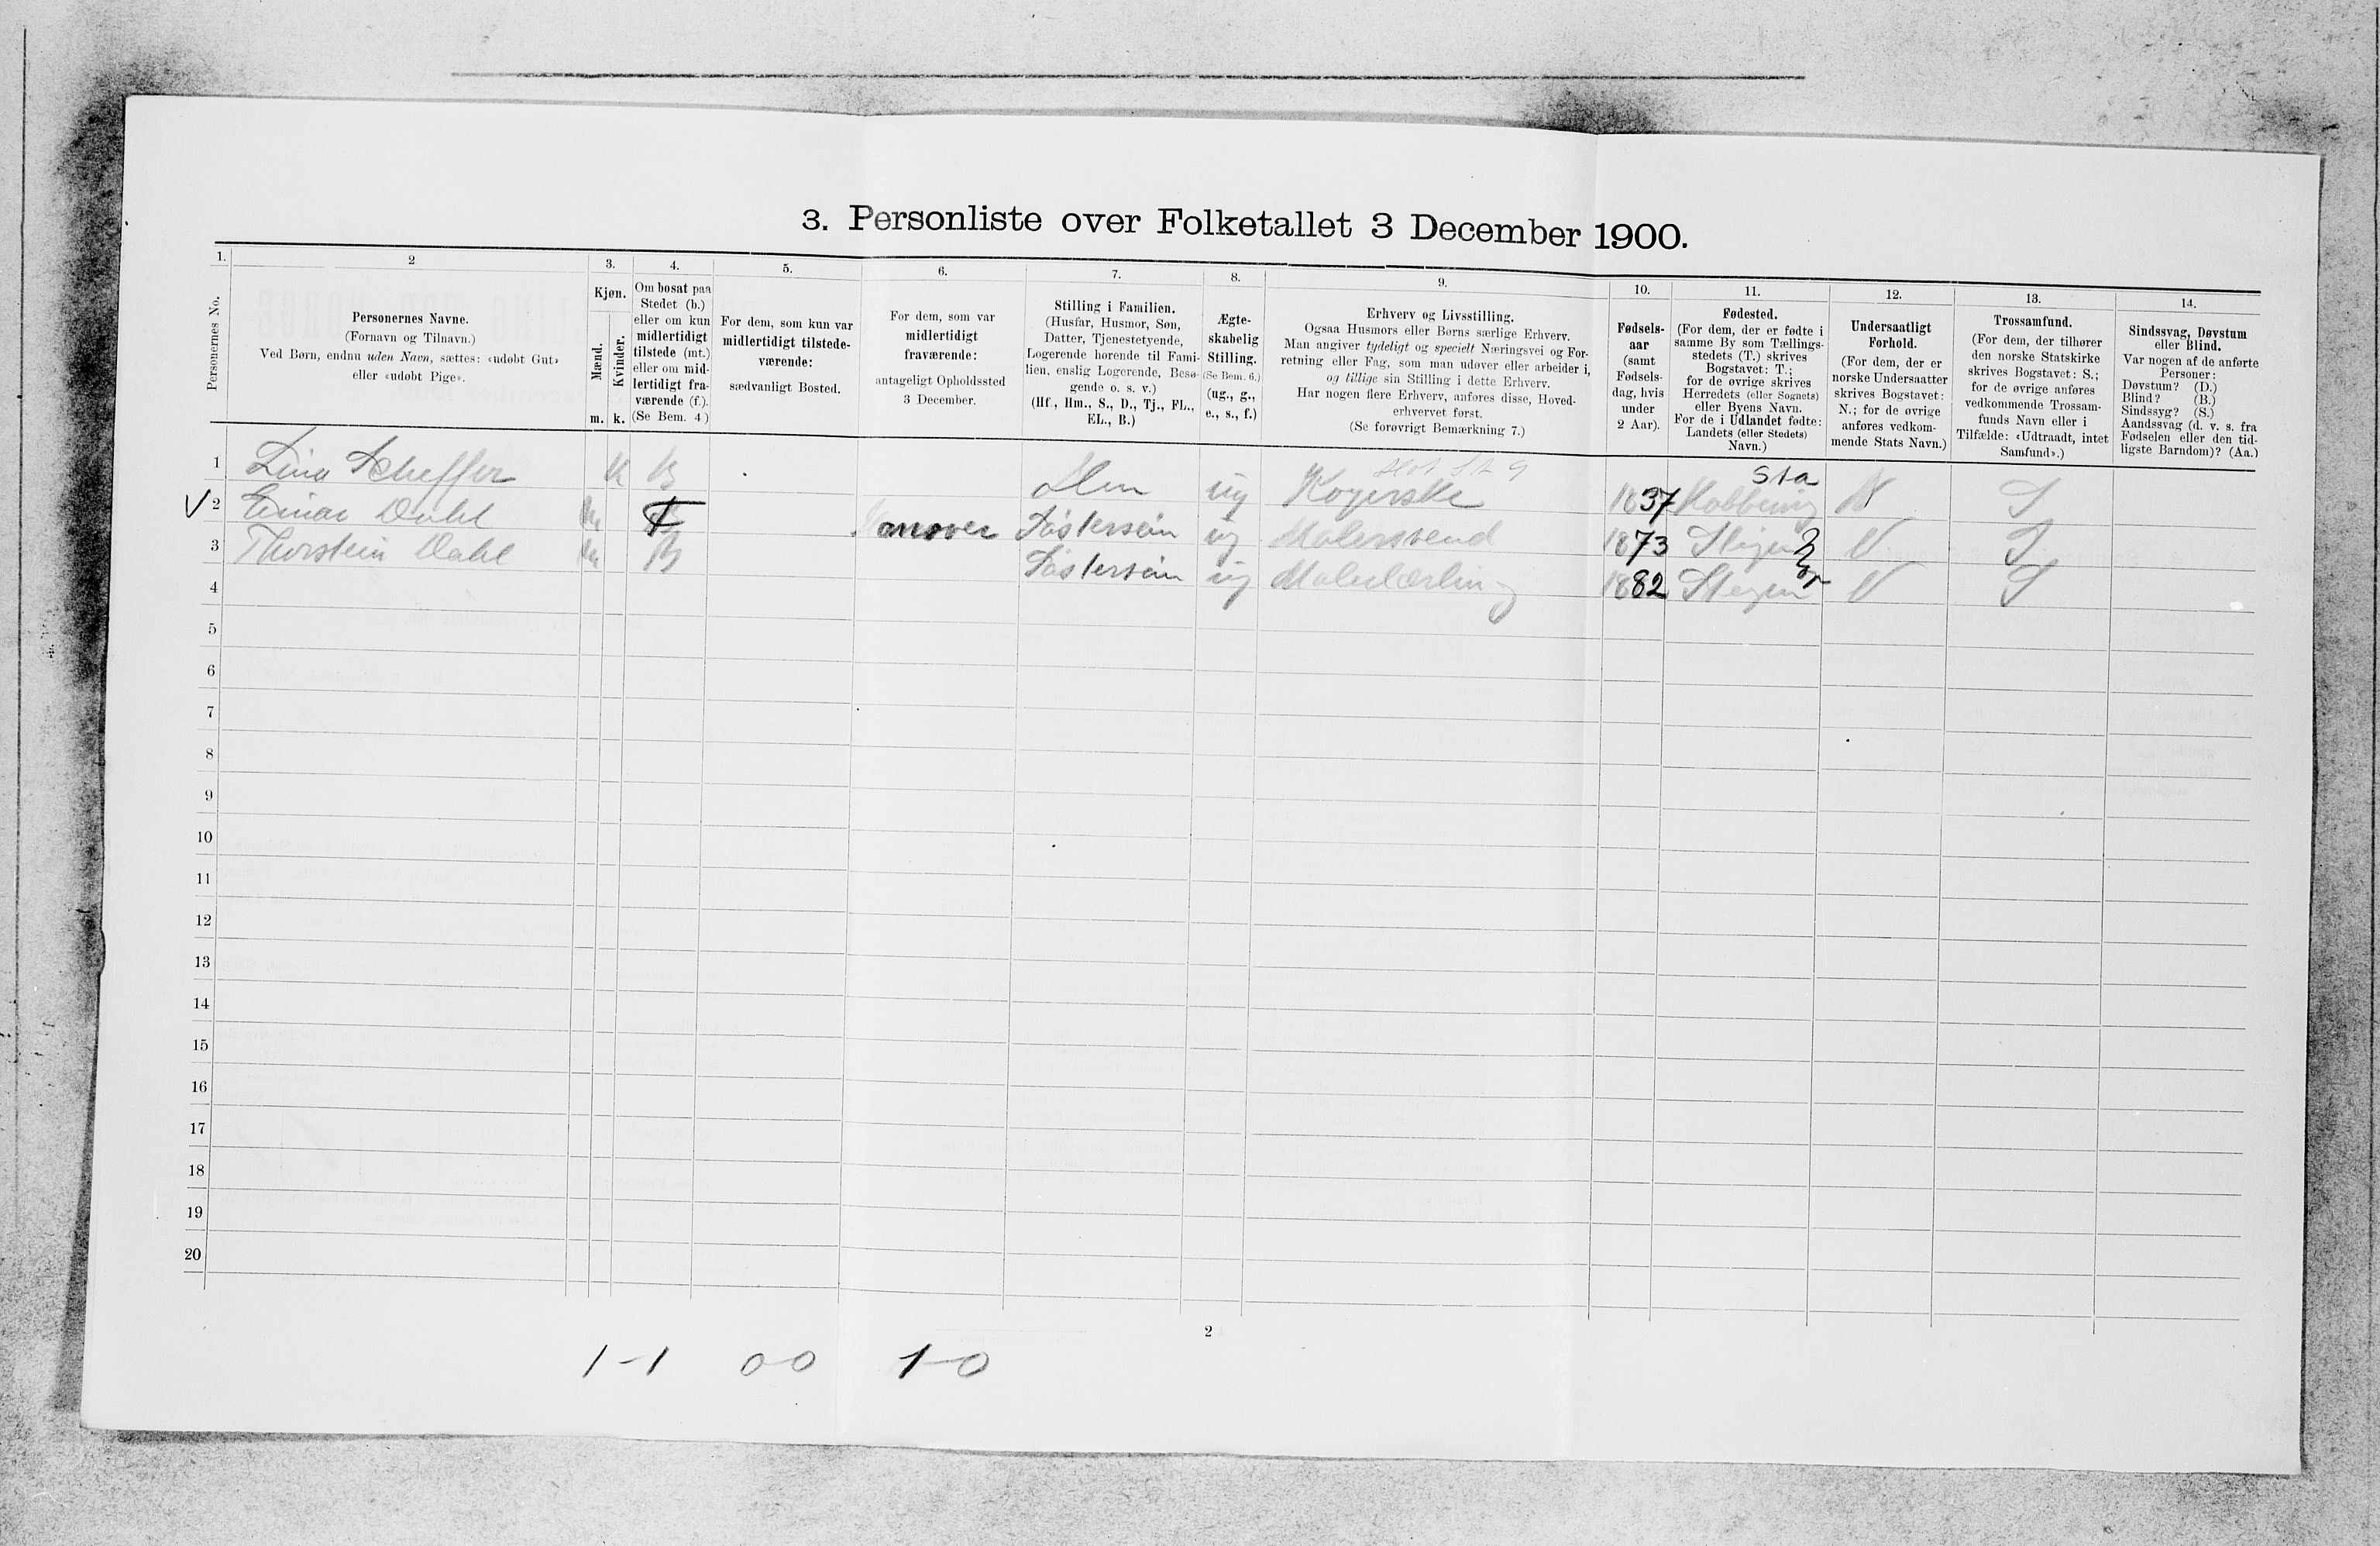 3. Personliste over Folketallet 3 December 1900.
1. 2 3. 4. 5. 6. 7. 8. 9. 10. 11. 12. 13. 14.
Personernes No.
Personernes Navne.
(Fornavn og Tilnavn.)
Ved Børn, endnu uden Navn, sættes: «udøbt Gut»
eller «udøbt Pige».
Kjøn.
Mænd.
Kvinder.
m. k.
Om bosat paa
Stedet (b.)
eller om kun
midlertidigt
tilstede (mt.)
eller om mid-
lertidigt fra-
værende (f.).
(Se Bem. 4)
For dem, som kun var
midlertidigt tilstede-
værende:
sædvanligt Bosted.
For dem, som var
midlertidigt
fraværende:
antageligt Opholdssted
3 December.
Stilling i Familien.
(Husfar, Husmor, Søn,
Datter, Tjenestetyende,
Logerende hørende til Fami-
lien, enslig Logerende, Besø-
gende o. s. v.)
(Hf., Hm., S., D., Tj., FL.,
EL., B.)
Ægte-
skabelig
Stilling.
(Se Bem. 6.)
(ug., g.,
e., s., f.)
Erhverv og Livsstilling.
Ogsaa Husmors eller Børns særlige Erhverv.
Man angiver tydeligt og specielt Næringsvei og For-
retning eller Fag, som man udøver eller arbeider i,
og tillige sin Stilling i dette Erhverv.
Har nogen flere Erhverv, anføres disse, Hoved-
erhvervet først.
(Se forøvrigt Bemærkning 7.)
Fødsels-
aar
(samt
Fødsels-
dag, hvis
under
2 Aar).
Fødested.
(For dem, der er fødte i
samme By som Tællings-
stedets (T.) skrives
Bogstavet: T.;
for de øvrige skrives
Herredets (eller Sognets)
eller Byens Navn.
For de i Udlandet fødte:
Landets (eller Stedets)
Navn.)
Undersaatligt
Forhold.
(For dem, der er
norske Undersaatter
skrives Bogstavet:
N.; for de øvrige
anføres vedkom-
mende Stats Navn.)
Trossamfund.
(For dem, der tilhører
den norske Statskirke
skrives Bogstavet: S.;
for de øvrige anføres
vedkommende Trossam-
funds Navn eller i
Tilfælde: «Udtraadt, intet
Samfund».)
Sindssvag, Døvstum
eller Blind.
Var nogen af de anførte
Personer:
Døvstum? (D.)
Blind? (B.)
Sindssyg? (S.)
Aandssvag (d. v. s. fra
Fødselen eller den tid-
ligste Barndom)? (Aa.)
Sta
1 Lina Scheffer K B Hm ug Kogerske 1837 N S
2 Einar Dahl M F Søstersøn ug Malersvend 1873 N S
3 Thorstein Dahl M B Søstersøn ug Malerlærling 1882 Stegen N S
4
5
6
7
8
9
10
11
12
13
14
15
16
17
18
19
20
2
1-1 0-0 1-0